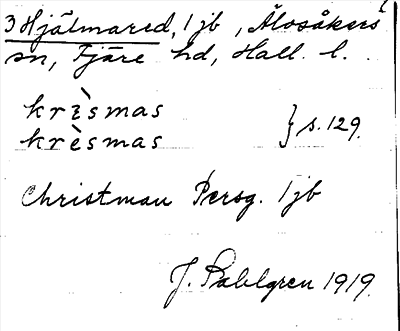 3 Hjälmared, 1 jb, Älvsåkers
sn, Fjäre hd, Hall. l.
krìsmas
krèsmas } s. 129.
Christman Persg. 1 jb
J. Sahlgren 1919.